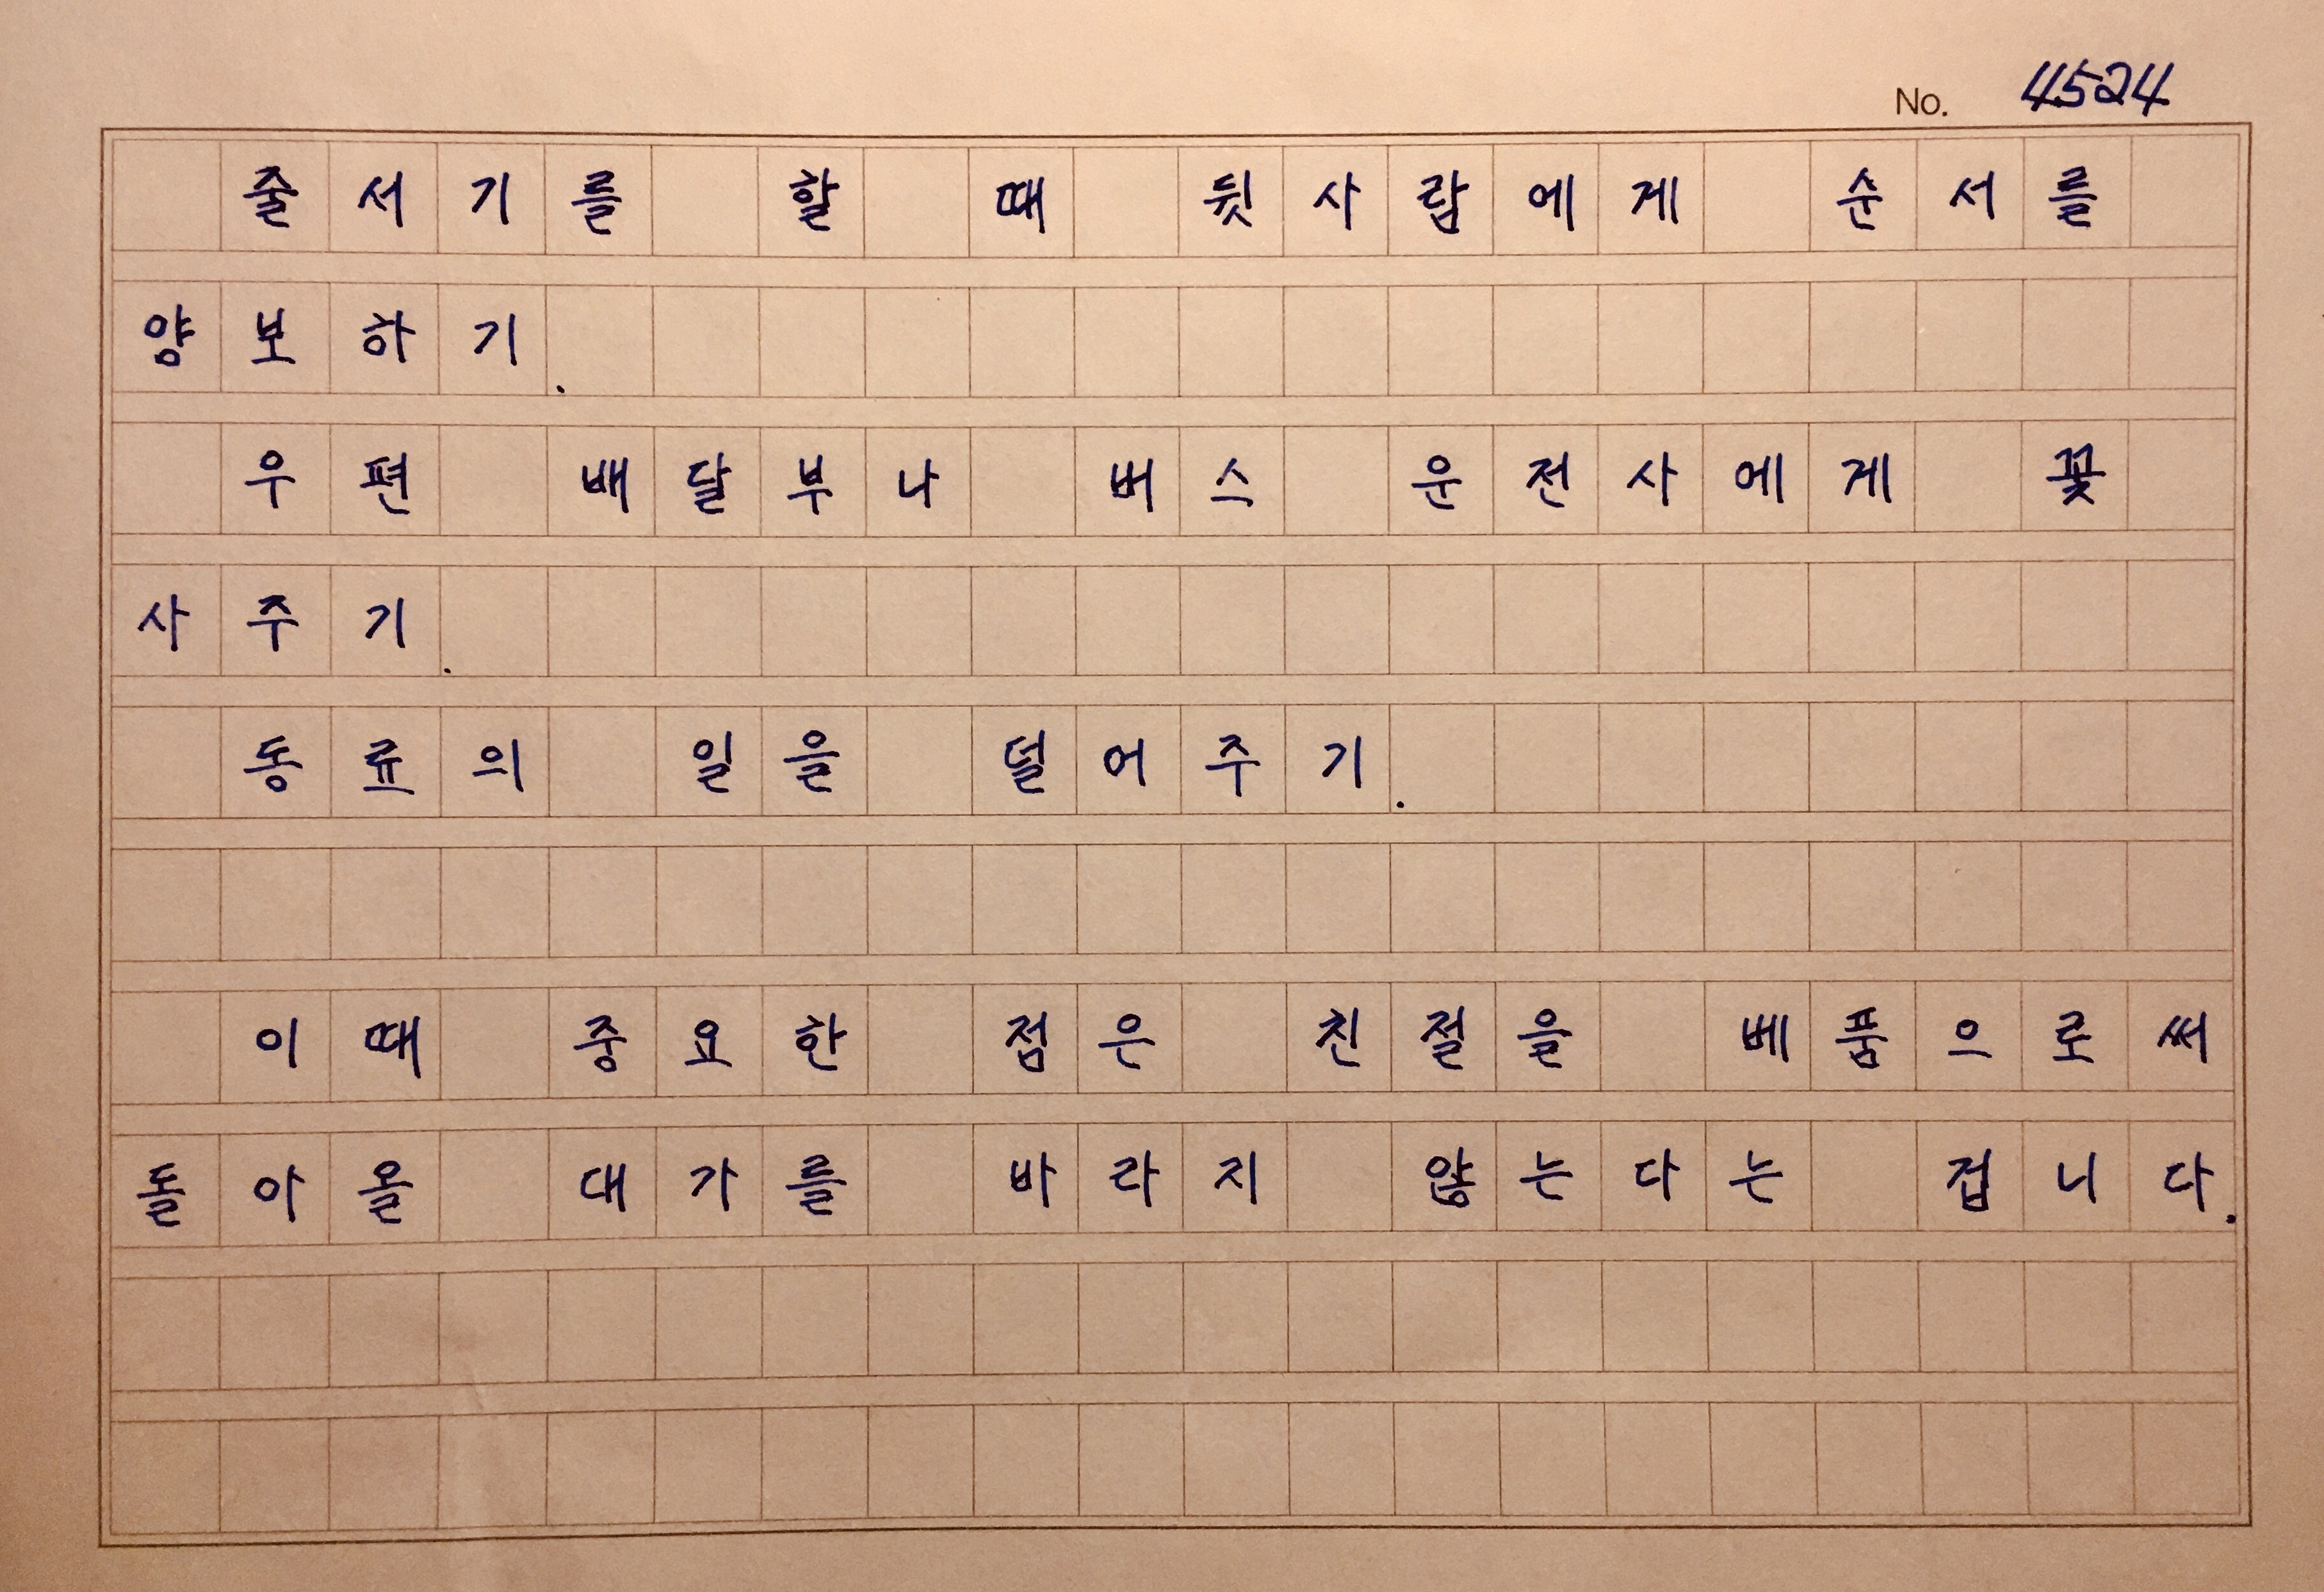 No. 4524
줄서기를 할 때 뒷사람에게 순서를
양보하기.
우편 배달부나 버스 운전사에게 꽃
사주기.
동료의 일을 덜어주기.
이때 중요한 점은 친절을 베품으로써
돌아올 대가를 바라지 않는다는 겁니다.